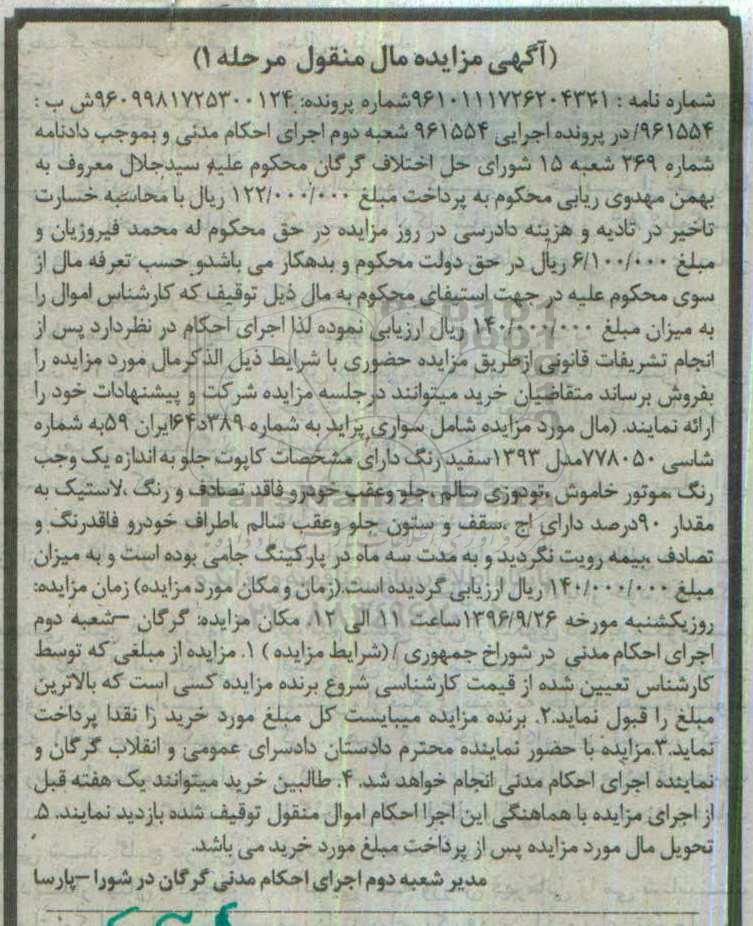 (آگهی مزایده مال منقول مرحله ۱)
شماره نامه : ۹۶۱۰۱۱۱۷۲۶۲۰۴۳۲۱شماره پرونده: ۹۶۰۹۹۸۱۷۲۵۳۰۰۱۲۴ش ب :
۹۶۱۵۵۴/ در پرونده اجرایی ۹۶۱۵۵۴ شعبه دوم اجرای احکام مدنی و بموجب دادنامه
شماره ۲۶۹ شعبه ۱۵ شورای حل اختلاف گرگان محکوم علیه سیدجلال معروف به
بهمن مهدوی ریابی محکوم به پرداخت مبلغ ۱۲۲/۰۰۰/۰۰۰ ریال با محاسبه خسارت
تاخیر در تادیه و هزینه دادرسی در روز مزایده در حق محکوم له محمد فیروزیان و
مبلغ ۶/۱۰۰/۰۰۰ ریال در حق دولت محکوم و بدهکار می باشدو حسب تعرفه مال از
سوی محکوم علیه در جهت استیفای محکوم به مال ذیل توقیف که کارشناس اموال را
به میزان مبلغ ۱۴۰/۰۰۰/۰۰۰ ریال ارزیابی نموده لذا اجرای احکام در نظردارد پس از
انجام تشریفات قانونی ازطریق مزایده حضوری با شرایط ذیل الذکرمال مورد مزایده را
بفروش برساند متقاضیان خرید میتوانند درجلسه مزایده شرکت و پیشنهادات خود را
ارائه نمایند. (مال مورد مزایده شامل سواری پراید به شماره ۳۸۹د۶۴ایران ۵۹به شماره
شاسی ۷۷۸۰۵۰مدل ۱۳۹۳سفید رنگ دارای مشخصات کاپوت جلو به اندازه یک وجب
رنگ ،موتور خاموش ،تودوزی سالم ،جلو وعقب خودرو فاقد تصادف و رنگ ،لاستیک به
مقدار ۹۰درصد دارای آج ،سقف و ستون جلو وعقب سالم ،اطراف خودرو فاقدرنگ و
تصادف ،بیمه رویت نگردید و به مدت سه ماه در پارکینگ جامی بوده است و به میزان
مبلغ ۱۴۰/۰۰۰/۰۰۰ ریال ارزیابی گردیده است.(زمان و مکان مورد مزایده) زمان مزایده:
روزیکشنبه مورخه ۱۳۹۶/۹/۲۶ساعت ۱۱ الی ۱۲. مکان مزایده: گرگان –شعبه دوم
اجرای احکام مدنی در شوراخ جمهوری /(شرایط مزایده ) ۱. مزایده از مبلغی که توسط
کارشناس تعیین شده از قیمت کارشناسی شروع برنده مزایده کسی است که بالاترین
مبلغ را قبول نماید.۲. برنده مزایده میبایست کل مبلغ مورد خرید را نقدا پرداخت
نماید.۳.مزایده با حضور نماینده محترم دادستان دادسرای عمومی و انقلاب گرگان و
نماینده اجرای احکام مدنی انجام خواهد شد. ۴. طالبین خرید میتوانند یک هفته قبل
از اجرای مزایده با هماهنگی این اجرا احکام اموال منقول توقیف شده بازدید نمایند. ۵.
تحویل مال مورد مزایده پس از پرداخت مبلغ مورد خرید می باشد.
مدیر شعبه دوم اجرای احکام مدنی گرگان در شورا –پارسا